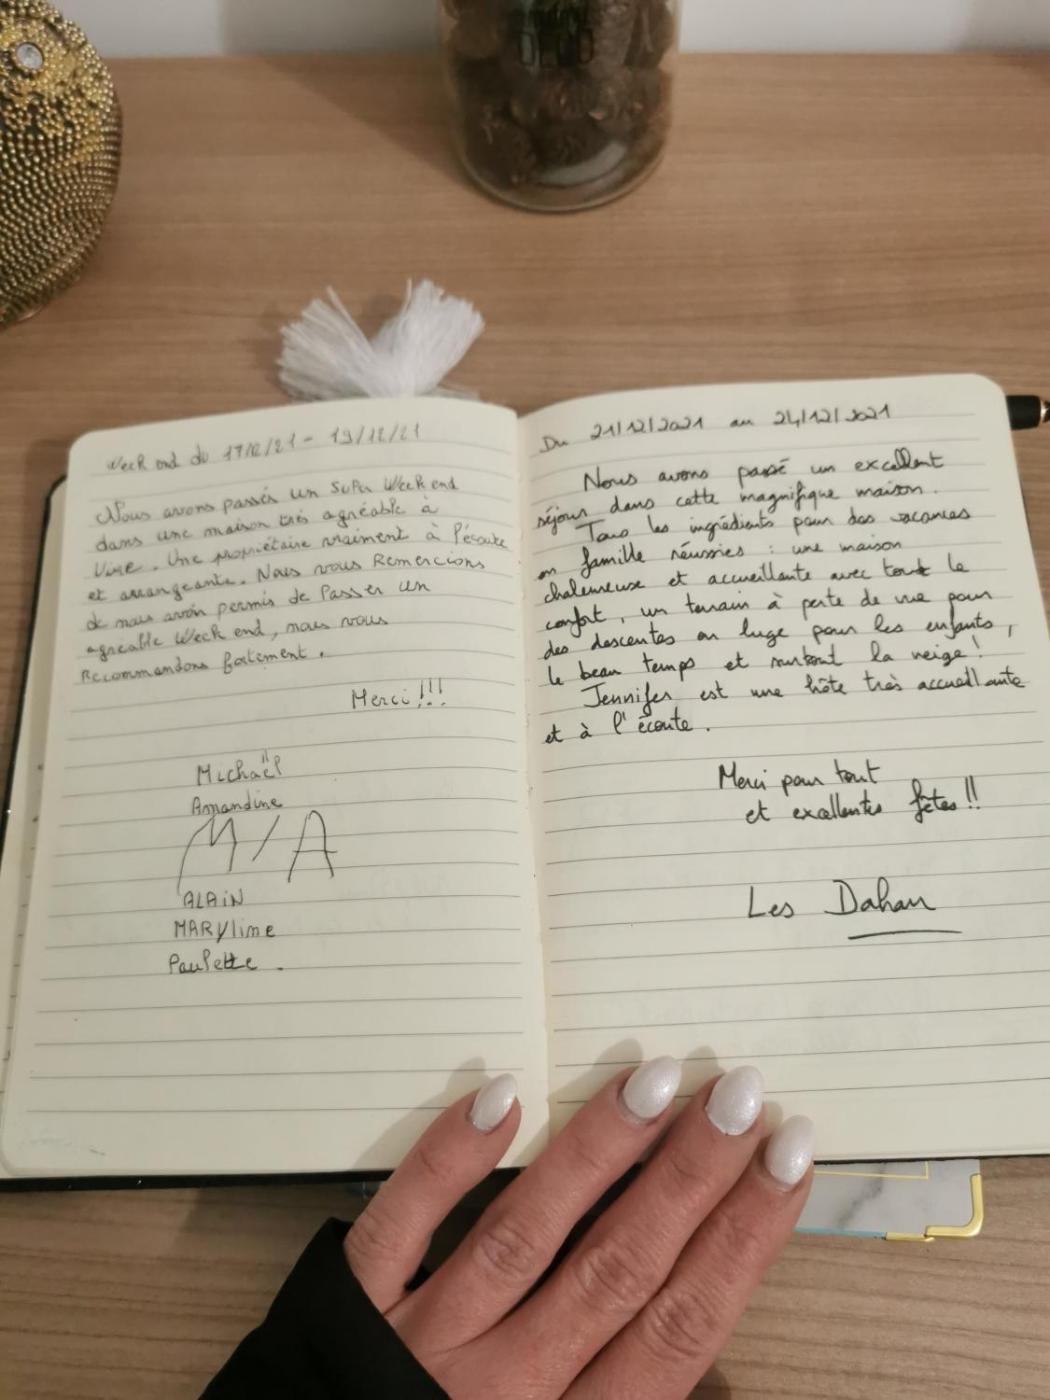 Week end du 17/12/21 - 19/12/21
Nous avons passés un super Week end
dans une maison très agréable à
vivre. Une propriétaire vraiment à l'écoute
et arrangeante. Nous vous Remercions
de nous avoir permis de Passer un
agréable Week end, nous vous
Recommandons fortement.
Merci!!!
Michaël
Amandine
M/A
ALAIN
MARyline
Paulette.
Du 21/12/2021 au 24/12/2021
Nous avons passé un excellent
séjour dans cette magnifique maison.
Tous les ingrédients pour des vacances
en famille réussies : une maison
chaleureuse et accueillante avec tout le
confort, un terrain à perte de vue pour
des descentes en luge pour les enfants,
le beau temps et surtout la neige!
Jennifer est une hôte très accueillante
et à l'écoute.
Merci pour tout
et excellentes fêtes!!
Les Dahan